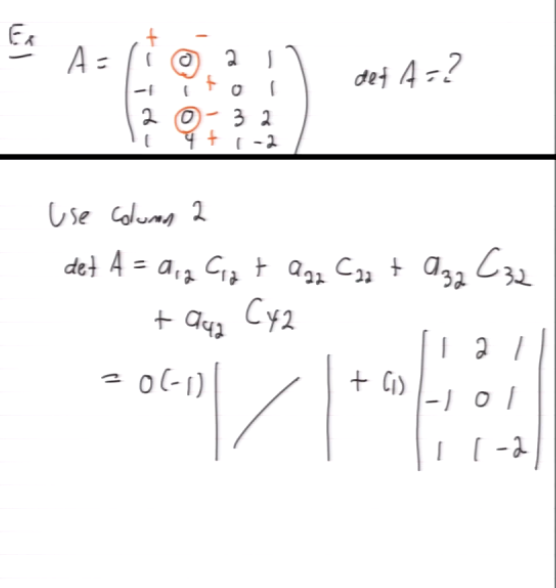 Ex
A = ( 1 0 2 1
-1 1 0 1
2 0 3 2
1 4 1 -2 ) det A = ?
+ -
+
-
+
Use Column 2
det A = a₁₂ C₁₂ + a₂₂ C₂₂ + a₃₂ C₃₂
+ a₄₂ C₄₂
= 0(-1) | / | + (1) | 1 2 1
-1 0 1
1 1 -2 |